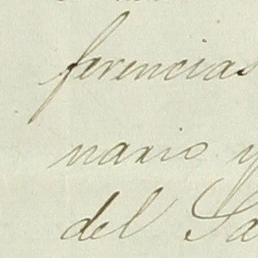 ferencias
nario y
del Sa